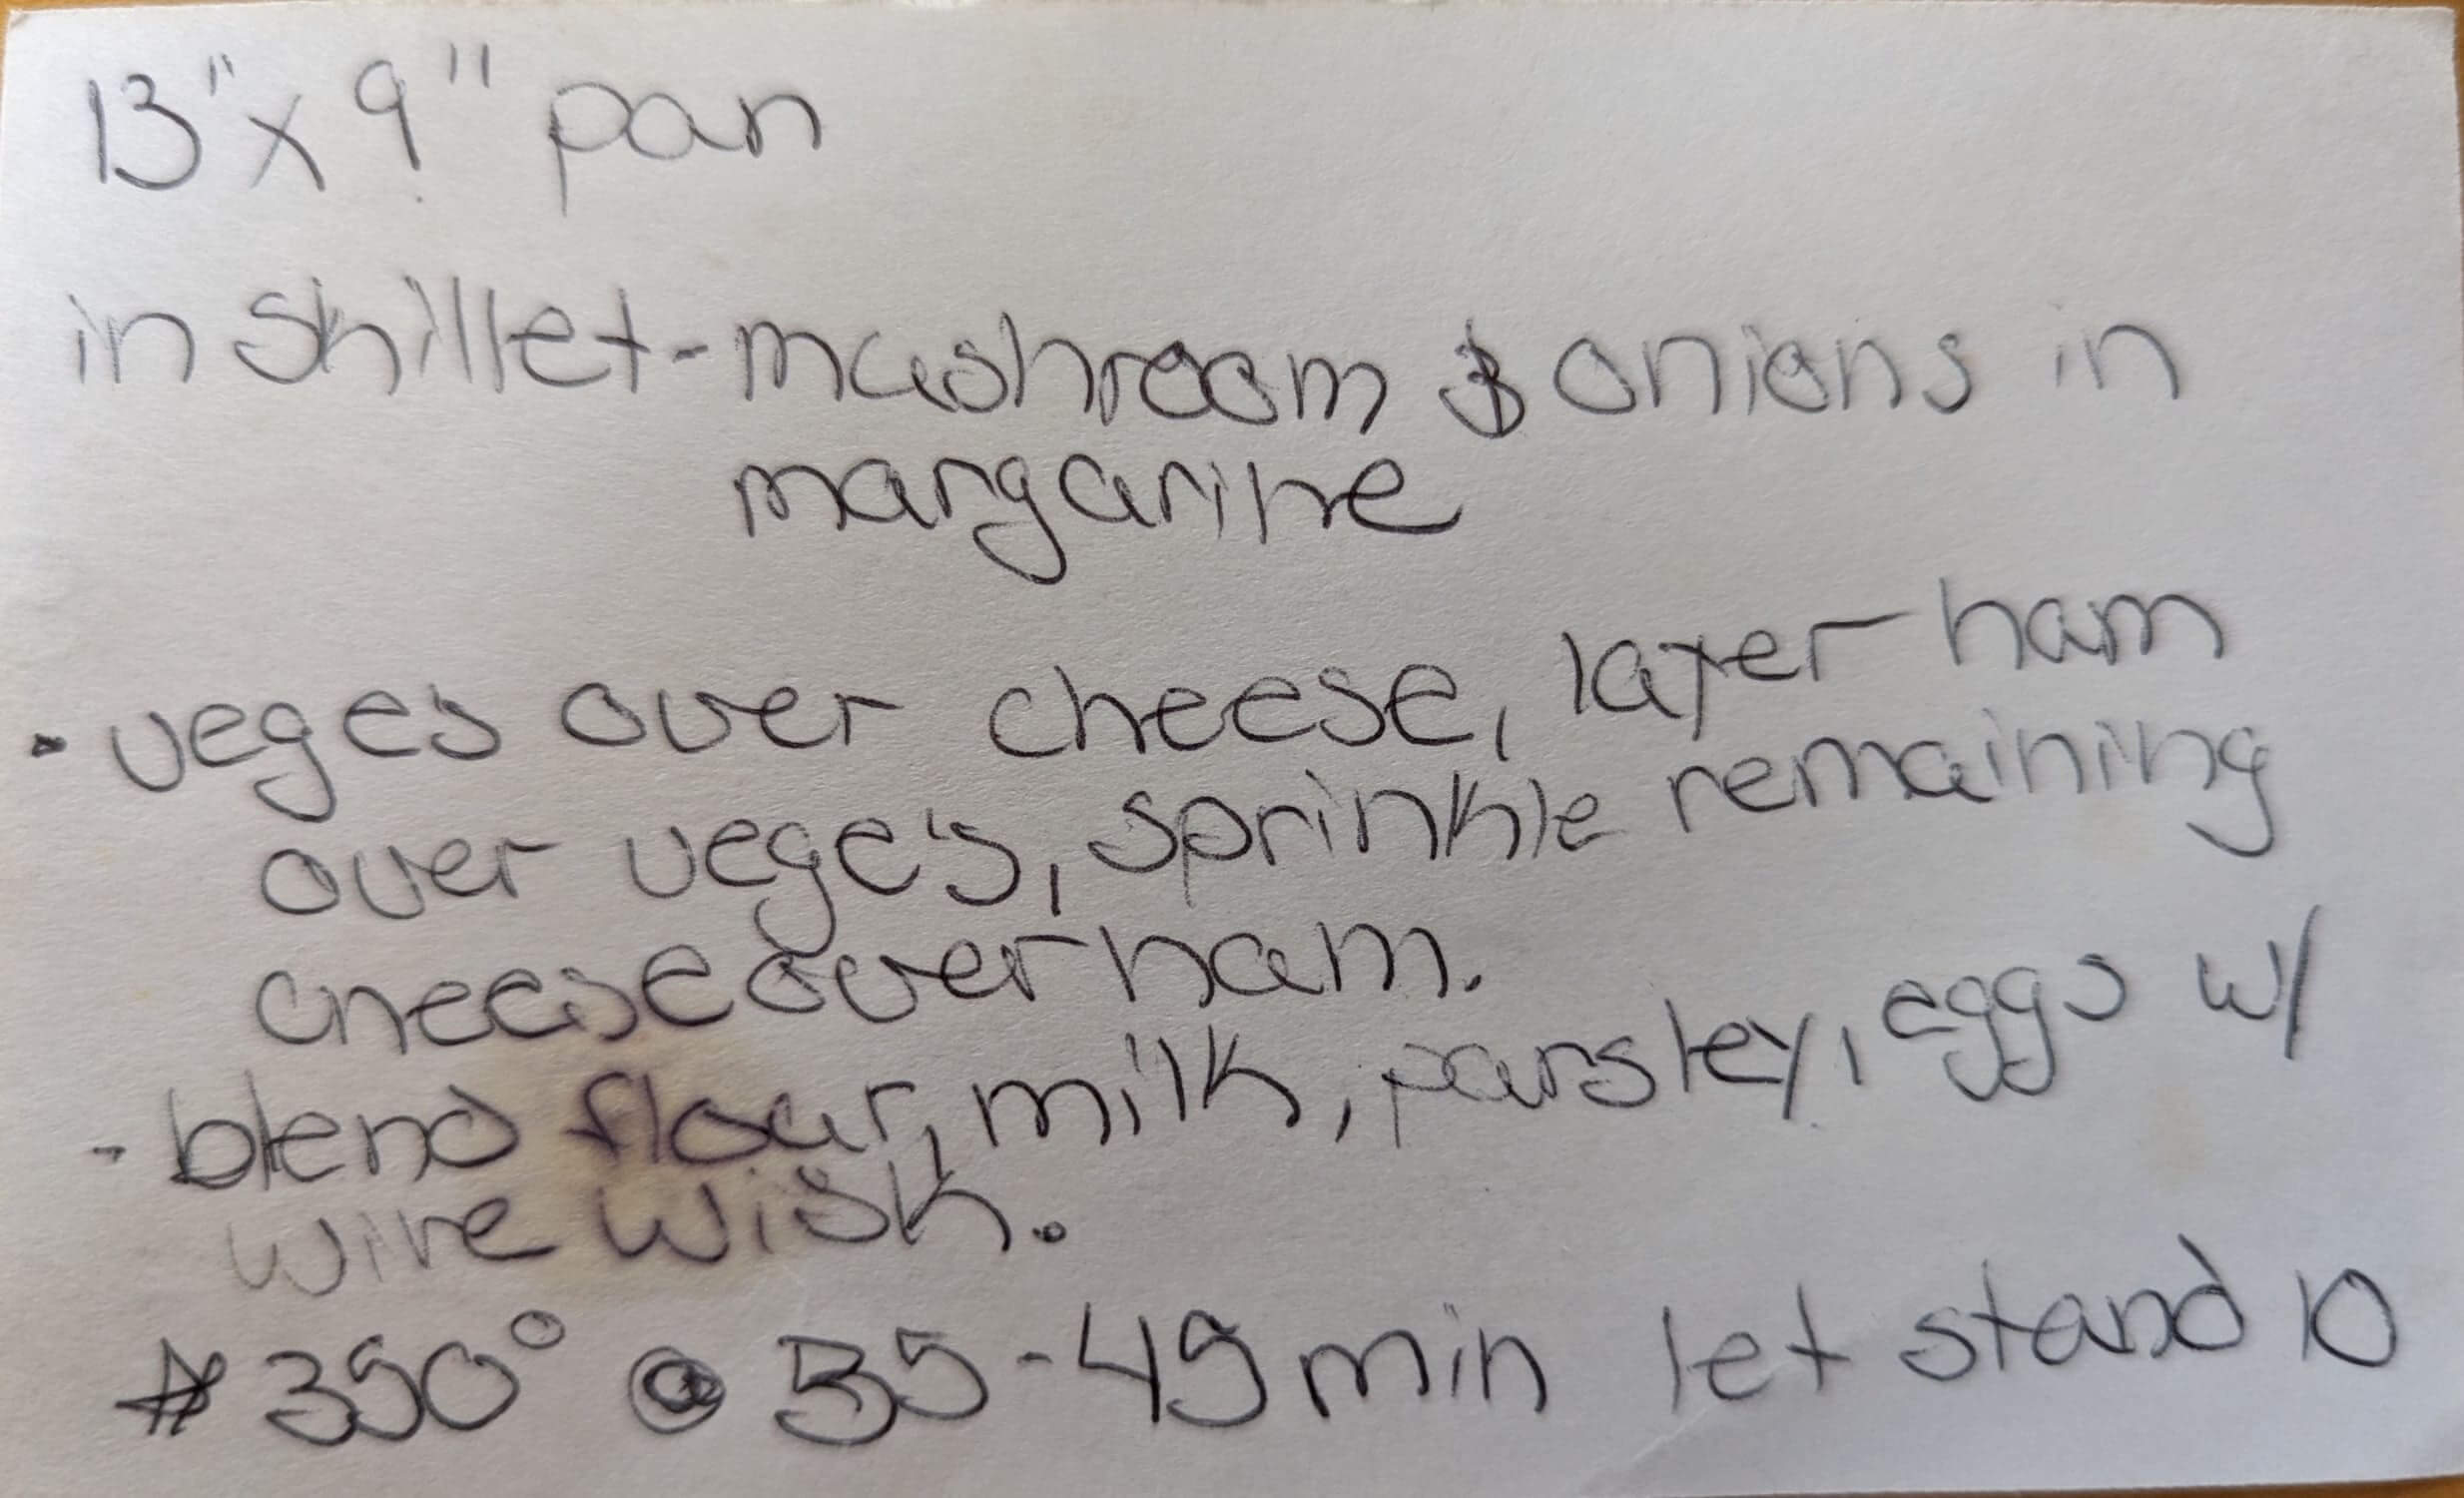 13" x 9" pan
in skillet - mushroom & onions in
margarine
• veges over cheese, layer ham
over vege's, sprinkle remaining
cheese over ham.
- blend flour, milk, parsley, eggs w/
wire wisk.
# 350° @ 35-45 min let stand 10